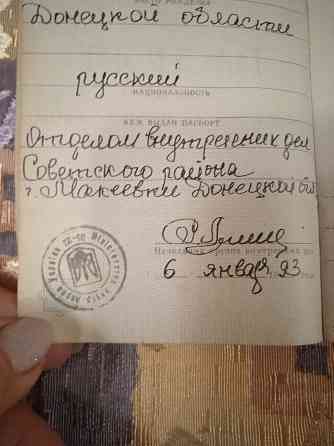 Донецкой области
русский
НАЦИОНАЛЬНОСТЬ
КЕМ ВЫДАН ПАСПОРТ
Отделом внутренних дел
Советского района
г. Макеевки Донецкой обл
Начальник органа внутренних дел
6 января 93